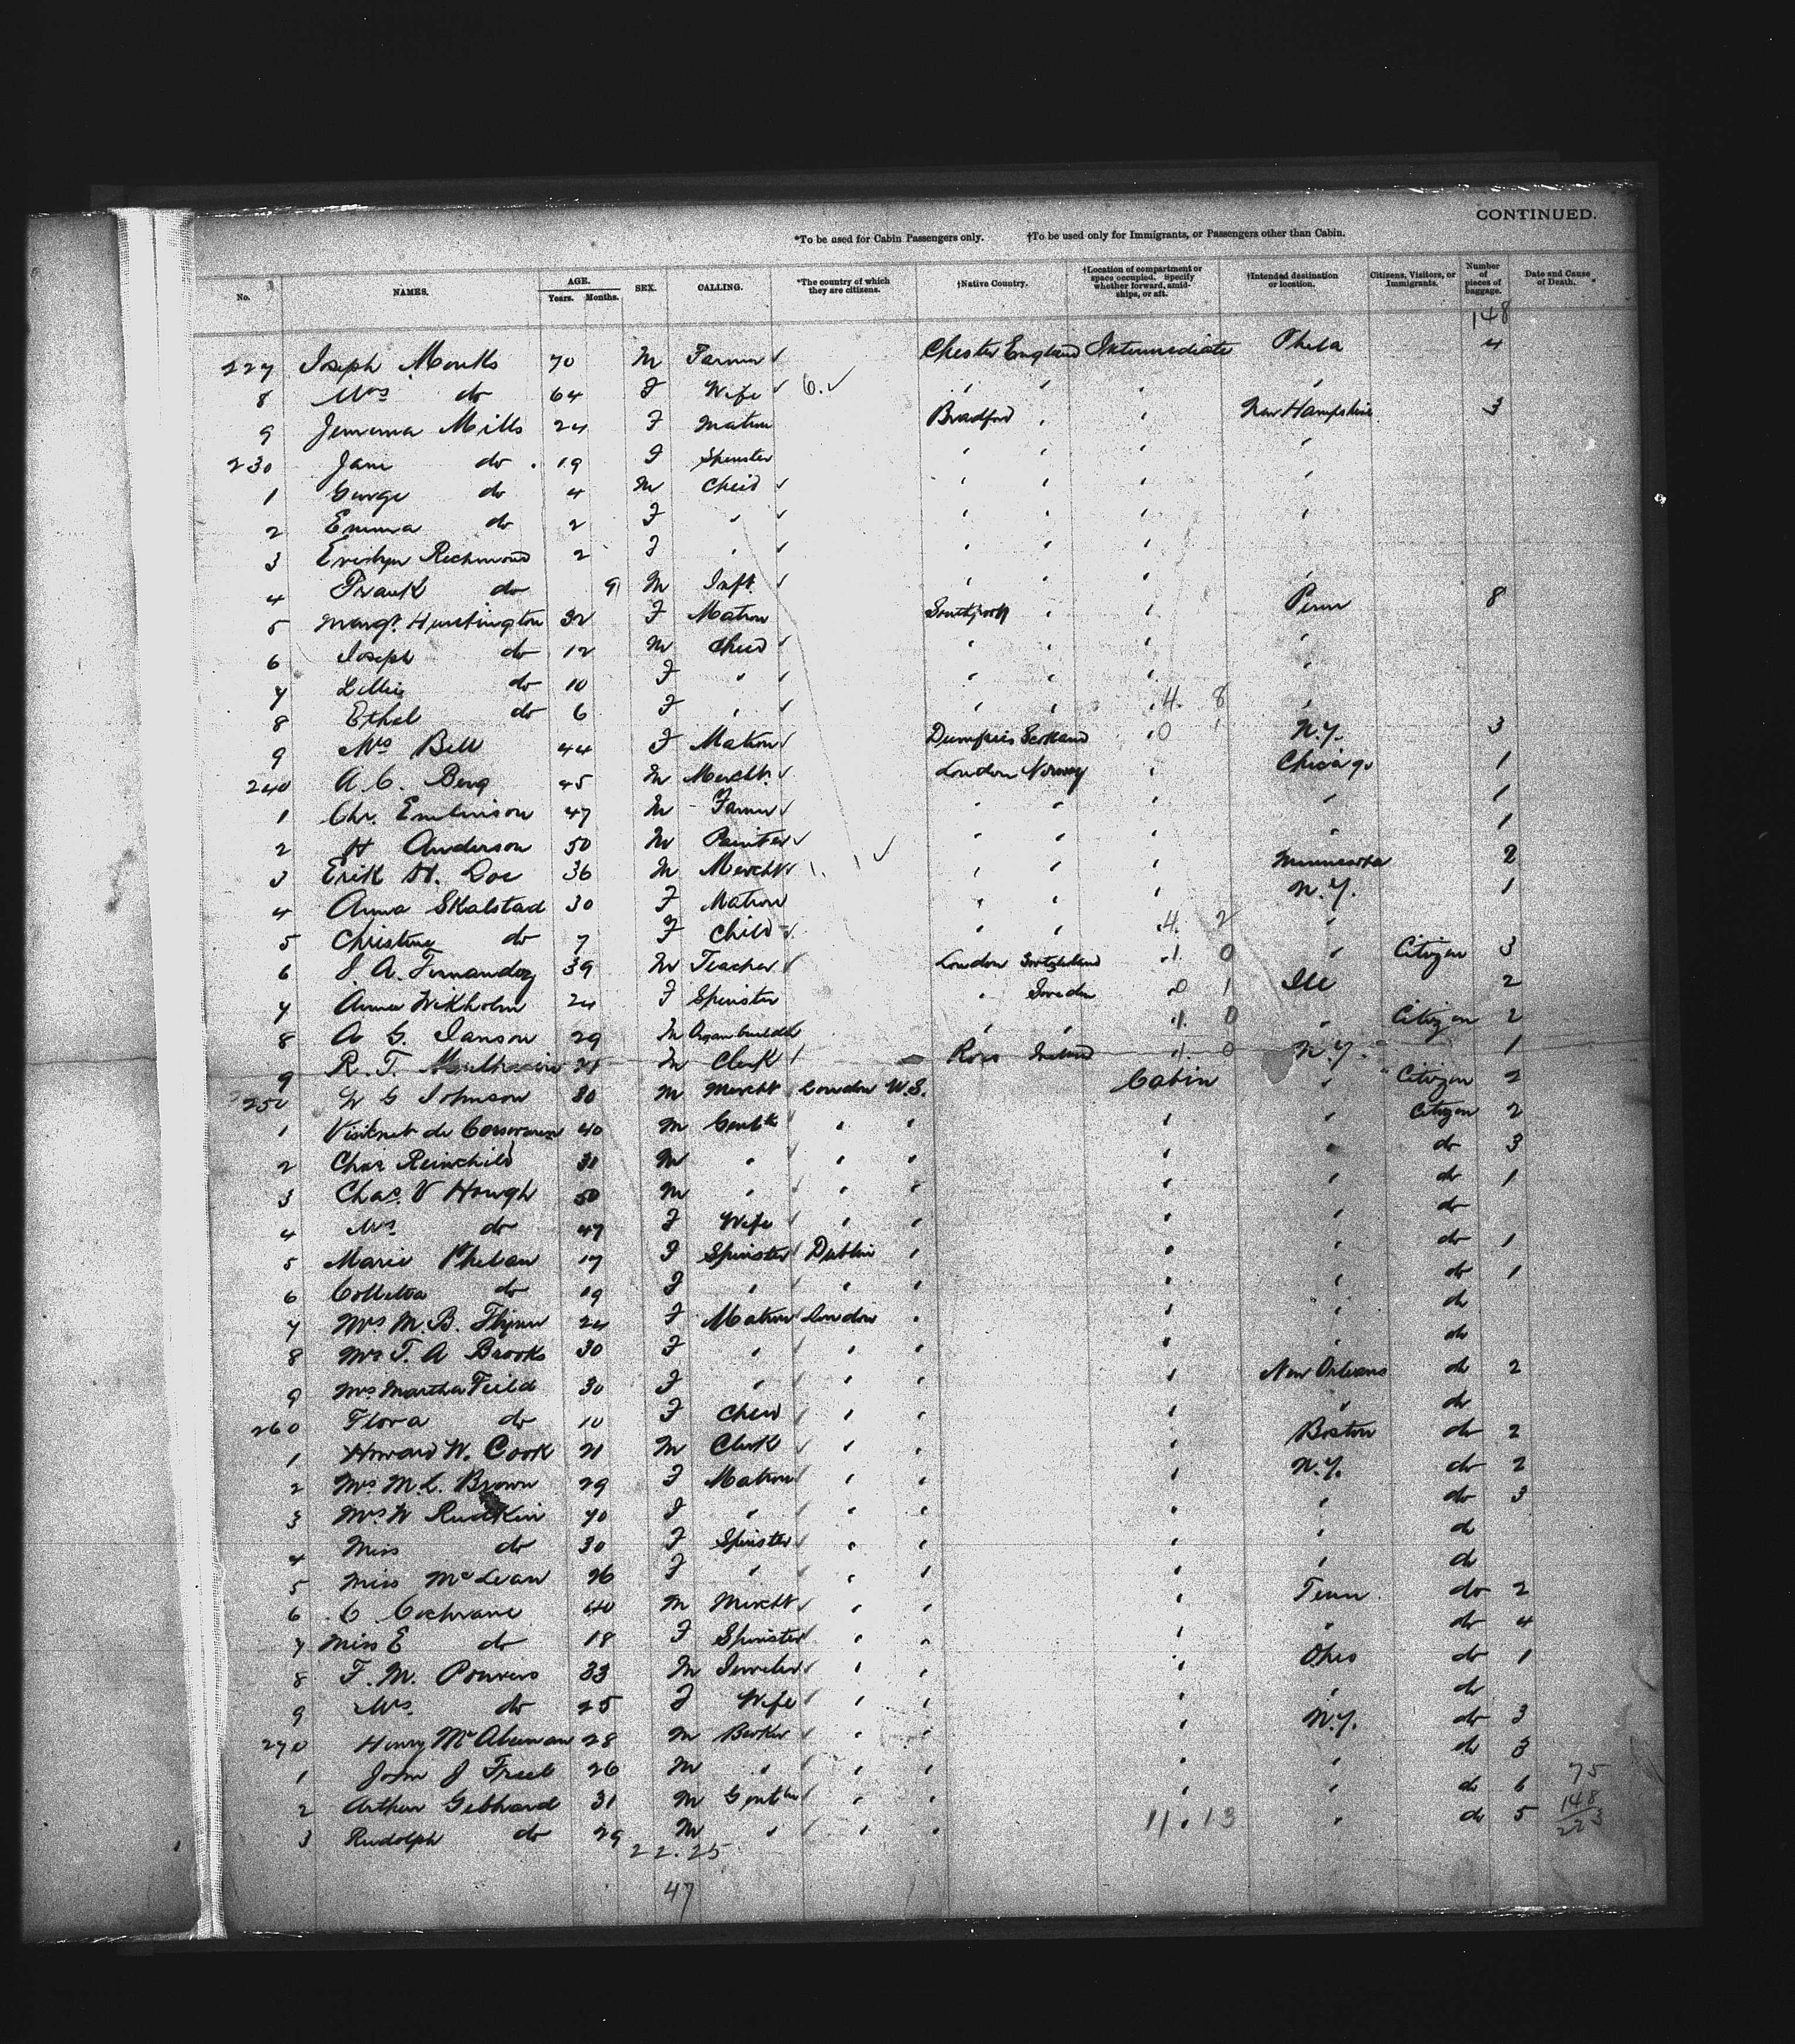 CONTINUED.
*To be used for Cabin Passengers only. †To be used only for Immigrants, or Passengers other than Cabin.
No. NAMES. AGE. Years. Months. SEX. CALLING. *The country of which they are citizens. †Native Country. †Location of compartment or space occupied. Specify whether forward, amidships, or aft. †Intended destination or location. Citizens, Visitors, or Immigrants. Number of pieces of baggage. Date and Cause of Death.
148
227 Joseph 70 M Farmer Chester England Intermediate Phila 4
8 Mrs do 64 F Wife 6. " " " "
9 Jemima Mills 24 F Matron Bradford " " New Hampshire 3
230 Jane do 19 F Spinster " " " "
1 George do 4 M Child " " " "
2 Emma do 2 F " " " " "
3 Evelyn Richmond 2 F " " " " "
4 Frank do 9 M Inft. " " " "
5 Margt. Huntington 32 F Matron Southport " " Penn 8
6 Joseph do 12 M Child " " " "
7 Lillie do 10 F " " " " "
8 Ethel do 6 F " " " " 4. 8 "
9 Mrs Bell 44 F Matron Dumfries Scotland " 0 1 N.Y. 3
240 A. C. Berg 45 M Mercht. London Norway " Chicago 1
1 Chr. Emlinson 47 M Farmer " " " " 1
2 H Anderson 50 M Painter " " " " 1
3 Erik H. Doe 36 M Mercht " " " Minnesota 2
4 Anna Skalstad 30 F Matron " " " N.Y. 1
5 Christine do 7 F Child " " 4. 2 "
6 J. A. Fernandez 39 M Teacher London Switzerland 1 0 " Citizen 3
7 Anna Wikholm 24 F Spinster " Sweden 0 1 Ill 2
8 A G. Janson 29 M Organ builder " " 1. 0 " Citizen 2
9 R. T. 21 M Clerk Ross Ireland 1. 0 N.Y. 1
250 G Johnson 30 M Mercht London U.S. Cabin " Citizen 2
1 de 40 M Gentn " " " " Citizen 2
2 Chas Reinchild 31 M " " " " " do 3
3 Chas. V Hough 50 M " " " " " do 1
4 Mrs do 47 F Wife " " " " do
5 Marie Phelan 17 F Spinster Dublin " " " do 1
6 do 19 F " " " " " do 1
7 Mrs M. B. Flynn 24 F Matron London " " " do
8 Mrs T. A Brooks 30 F " " " " " do
9 Mrs Martha Feild 30 F " " " " New Orleans do 2
260 Flora do 10 F Child " " " " do
1 Howard W. Cook 21 M Clerk " " " Boston do 2
2 Mrs M. L. Brown 29 F Matron " " " N.Y. do 2
3 Mrs W Rudkin 70 F " " " " " do 3
4 Miss do 30 F Spinster " " " " do
5 Miss McLean 26 F " " " " " do
6 C Cochrane 40 M Mercht " " " Tenn. do 2
7 Miss E do 18 F Spinster " " " " do 4
8 F. M. Powers 33 M Jeweler " " " Ohio do 1
9 Mrs. do 25 F Wife " " " " do
270 Henry McAleenan 28 M " " " N.Y. do 3
1 John J Freel 26 M " " " " " do 3
2 Arthur Gebhard 31 M Gentln " " " " do 6 75
3 Rudolph do 29 M " " " 11. 13 " do 5 148
223
22.25
47